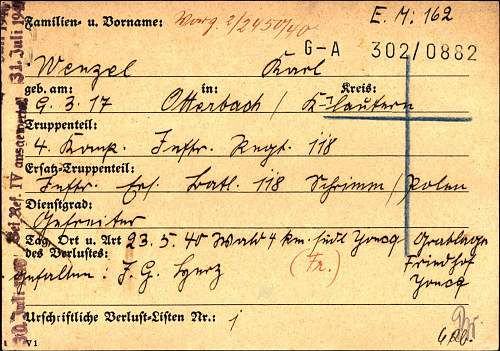 E. M: 162
Familien- u. Vorname: Vorg. 2/2450/40
G-A 302/0882
Wenzel Karl
geb. am: in: Kreis:
9. 3. 17 Otterbach / K-lautern
Truppenteil:
4. Komp. Inftr. Regt. 118
Ersatz-Truppenteil:
Inftr. Ers. Batl. 118 Schrimm / Polen
Dienstgrad:
Gefreiter
Tag, Ort u. Art 23. 5. 40 Wald 4 km. südl Yoncq Grablage
des Verlustes: (Fr.) Friedhof
gefallen: I. G. Herz Yoncq
Urschriftliche Verlust-Listen Nr.: 1
V1
30. Juli 19 Bei Ref. IV ausgewertet 31. Juli 19